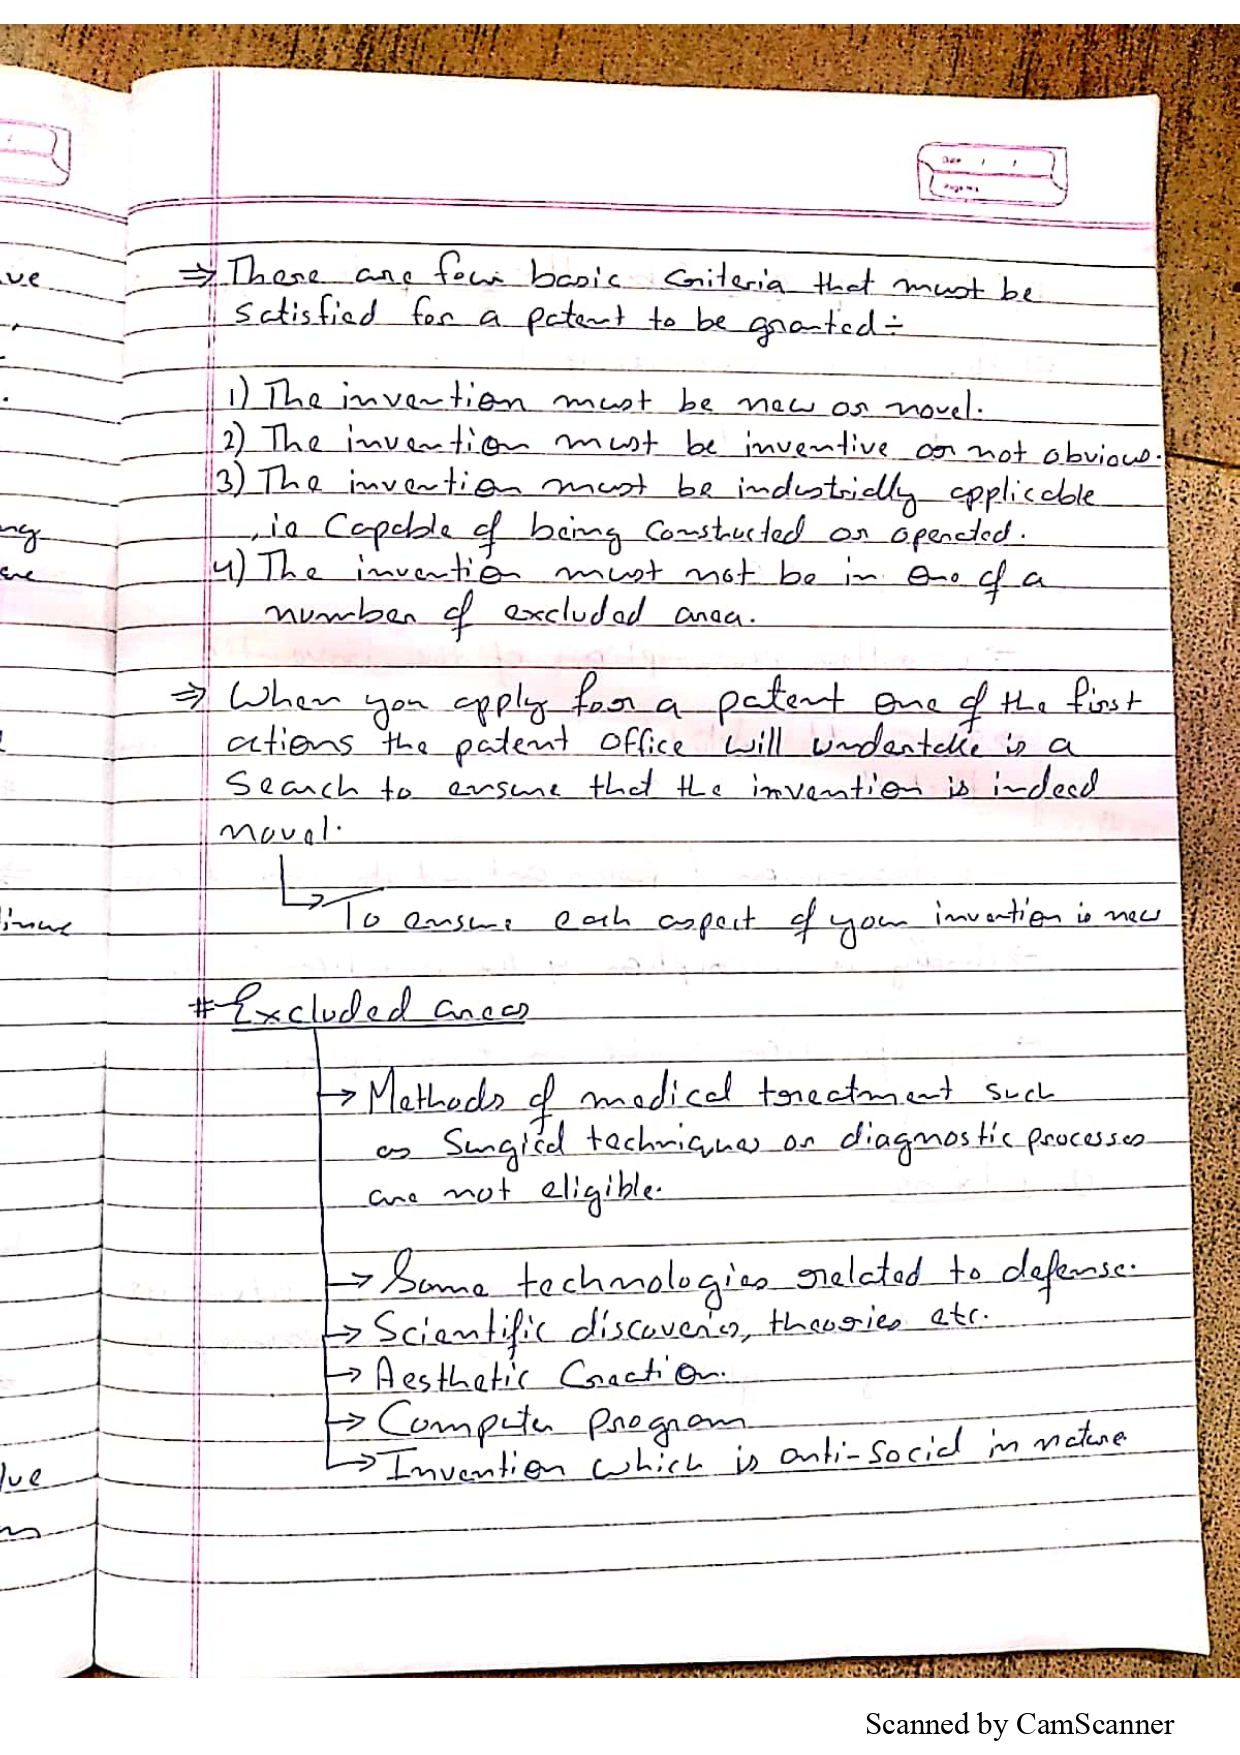 Date / /
Page No.
⇒ There are four basic criteria that must be
satisfied for a patent to be granted :-
1) The invention must be new or novel.
2) The invention must be inventive or not obvious.
3) The invention must be industrially applicable
, ie Capable of being constructed or operated.
4) The invention must not be in one of a
number of excluded area.
⇒ When you apply for a patent one of the first
actions the patent office will undertake is a
Search to ensure that the invention is indeed
novel.
To ensure each aspect of your invention is new
# Excluded areas
→ Methods of medical treatment such
as Surgical techniques or diagnostic processes
are not eligible.
→ Some technologies related to defense.
→ Scientific discoveries, theories etc.
→ Aesthetic Creation.
→ Computer program
→ Invention which is anti-social in nature
Scanned by CamScanner